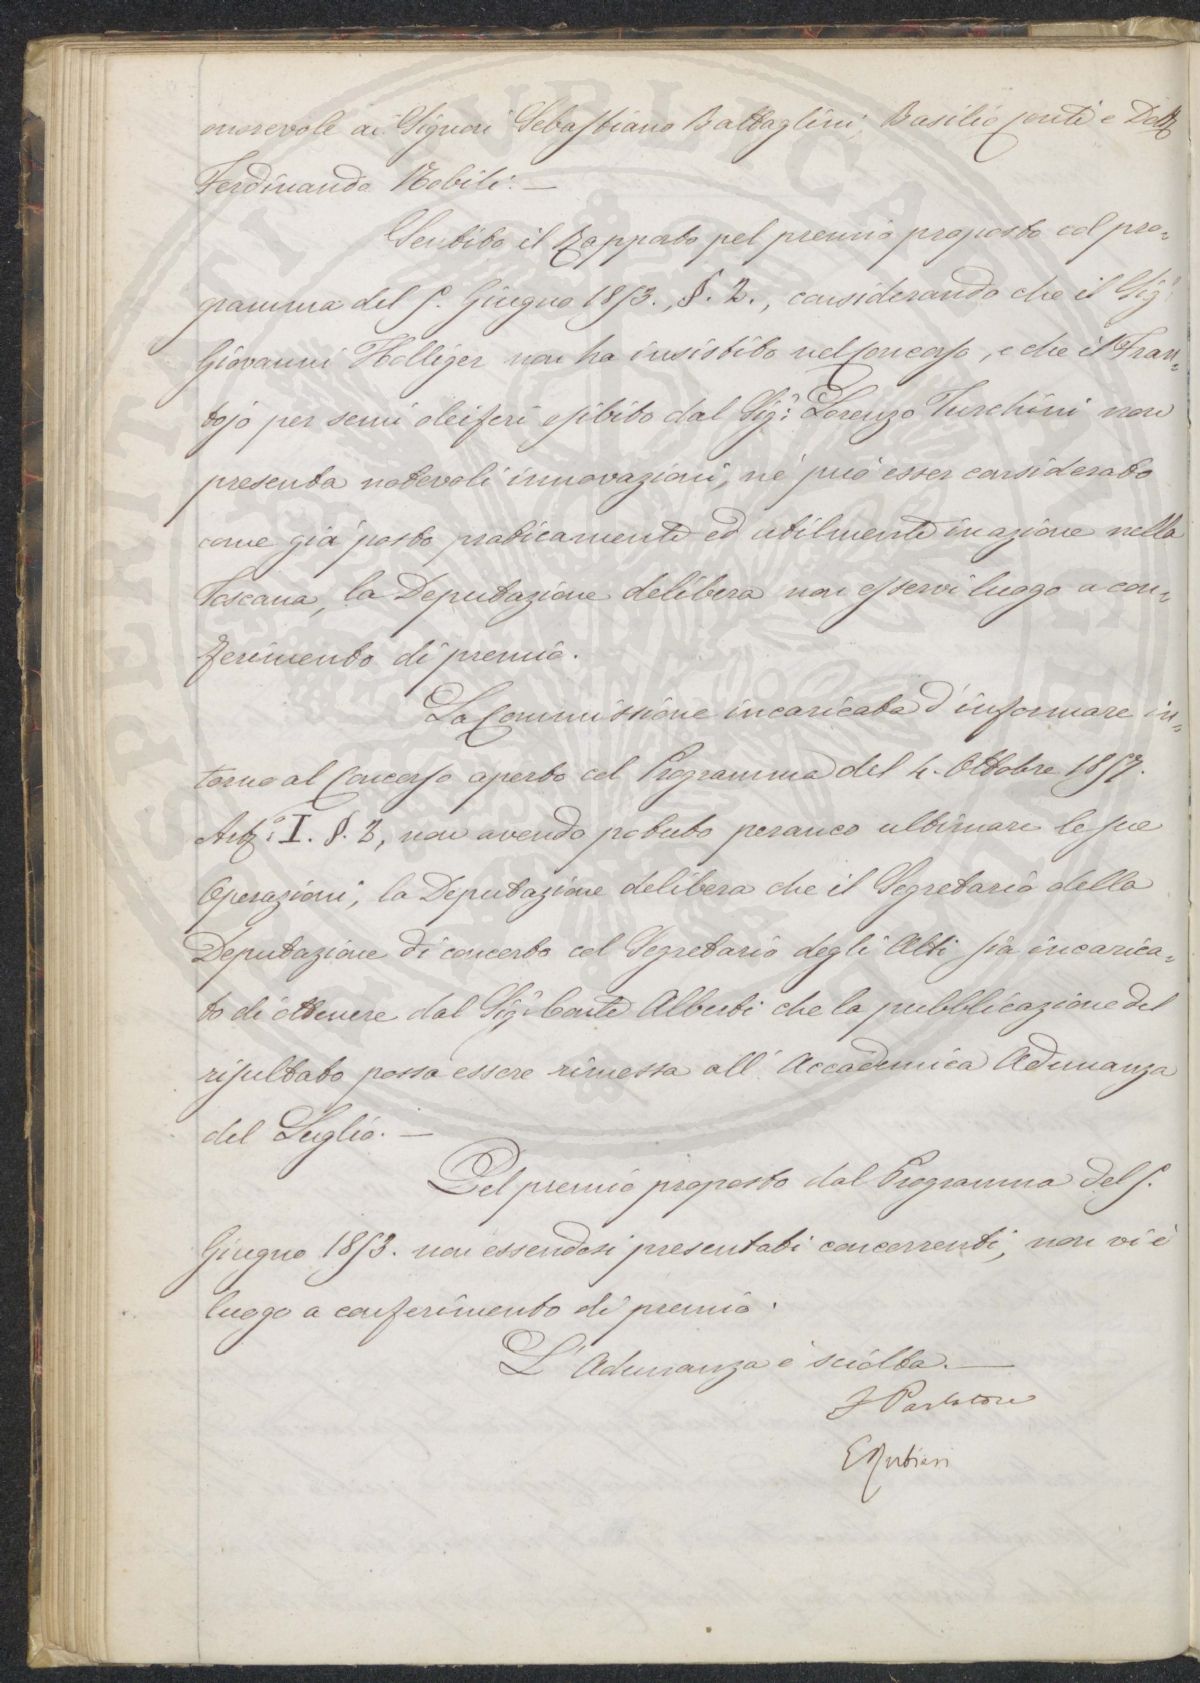 onorevole ai Signori Sebastiano Battaglini, Basilio Conti e Dott.
Ferdinando Nobili. —
Sentito il Rapporto pel premio proposto col pro=
gramma del 5. Giugno 1853., §. 2., considerando che il Sig.
Giovanni Holliger non ha insistito nel Concorso, e che il Fran=
tojo per semi oleiferi esibito dal Sig. Lorenzo Turchini non
presenta notevoli innovazioni, nè può esser considerato
come già posto praticamente ed utilmente in azione nella
Toscana, la Deputazione delibera non esservi luogo a con=
ferimento di premio.
La Commissione incaricata d'informare in=
torno al Concorso aperto col Programma del 4. Ottobre 1857.
Art. I. §. 2, non avendo potuto peranco ultimare le sue
Operazioni, la Deputazione delibera che il Segretario della
Deputazione di concerto col Segretario degli Atti sia incarica=
to di ottenere dal Sig. Conte Alberti che la pubblicazione del
risultato possa essere rimessa all'Accademica Adunanza
del Luglio. —
Pel premio proposto dal Programma del 5.
Giugno 1853. non essendosi presentati concorrenti, non vi è
luogo a conferimento di premio.
L'Adunanza è sciolta. —
F Parlatore
E Rubieri